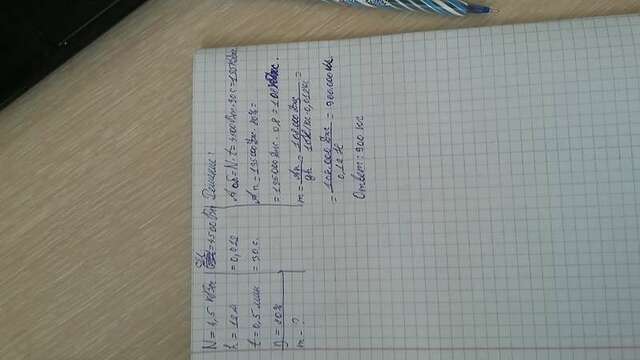 N = 4,5 кВт
h = 12 м
t = 0,5 мин
η = 80%
m - ?
СИ
= 4500 Вт
= 0,012
= 30 с.
Решение:
A об = N · t = 4500 Вт · 30 с = 135 кДж.
Aп = 135000 Дж · 80% =
= 135000 Дж · 0,8 = 108 кДж.
m = Aп / gh = 108.000 Дж / 10 Н/кг · 0,012 =
= 108.000 Дж / 0,12 = 900.000 кг.
Ответ: 900 кг